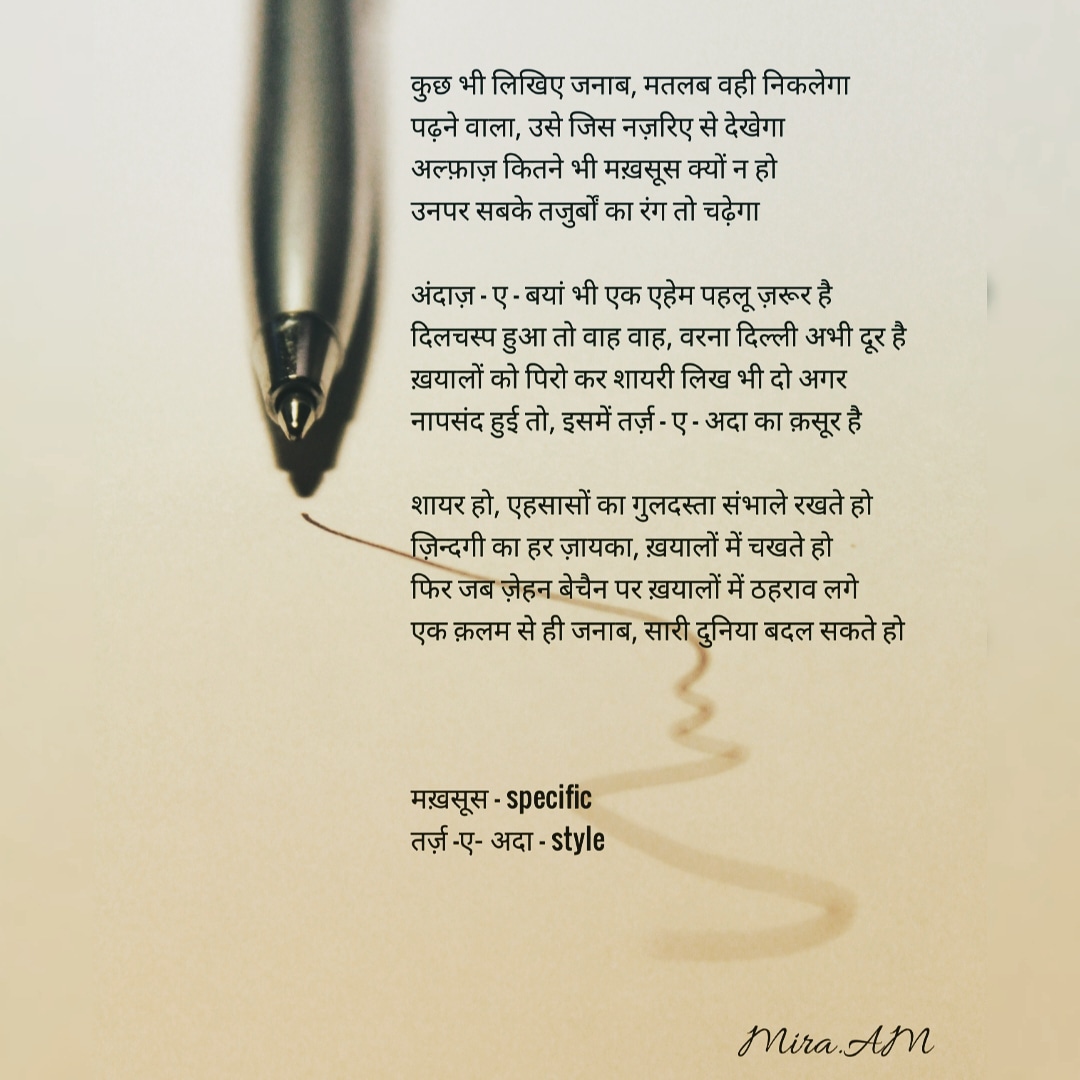 कुछ भी लिखिए जनाब, मतलब वही निकलेगा
पढ़ने वाला, उसे जिस नज़रिए से देखेगा
अल्फ़ाज़ कितने भी मख़सूस क्यों न हो
उनपर सबके तजुर्बों का रंग तो चढ़ेगा
अंदाज़ - ए - बयां भी एक एहेम पहलू ज़रूर है
दिलचस्प हुआ तो वाह वाह, वरना दिल्ली अभी दूर है
ख़यालों को पिरो कर शायरी लिख भी दो अगर
नापसंद हुई तो, इसमें तर्ज़ - ए - अदा का क़सूर है
शायर हो, एहसासों का गुलदस्ता संभाले रखते हो
ज़िन्दगी का हर ज़ायका, ख़यालों में चखते हो
फिर जब ज़ेहन बेचैन पर ख़यालों में ठहराव लगे
एक क़लम से ही जनाब, सारी दुनिया बदल सकते हो
मख़सूस - specific
तर्ज़ -ए- अदा - style
Mira.AM